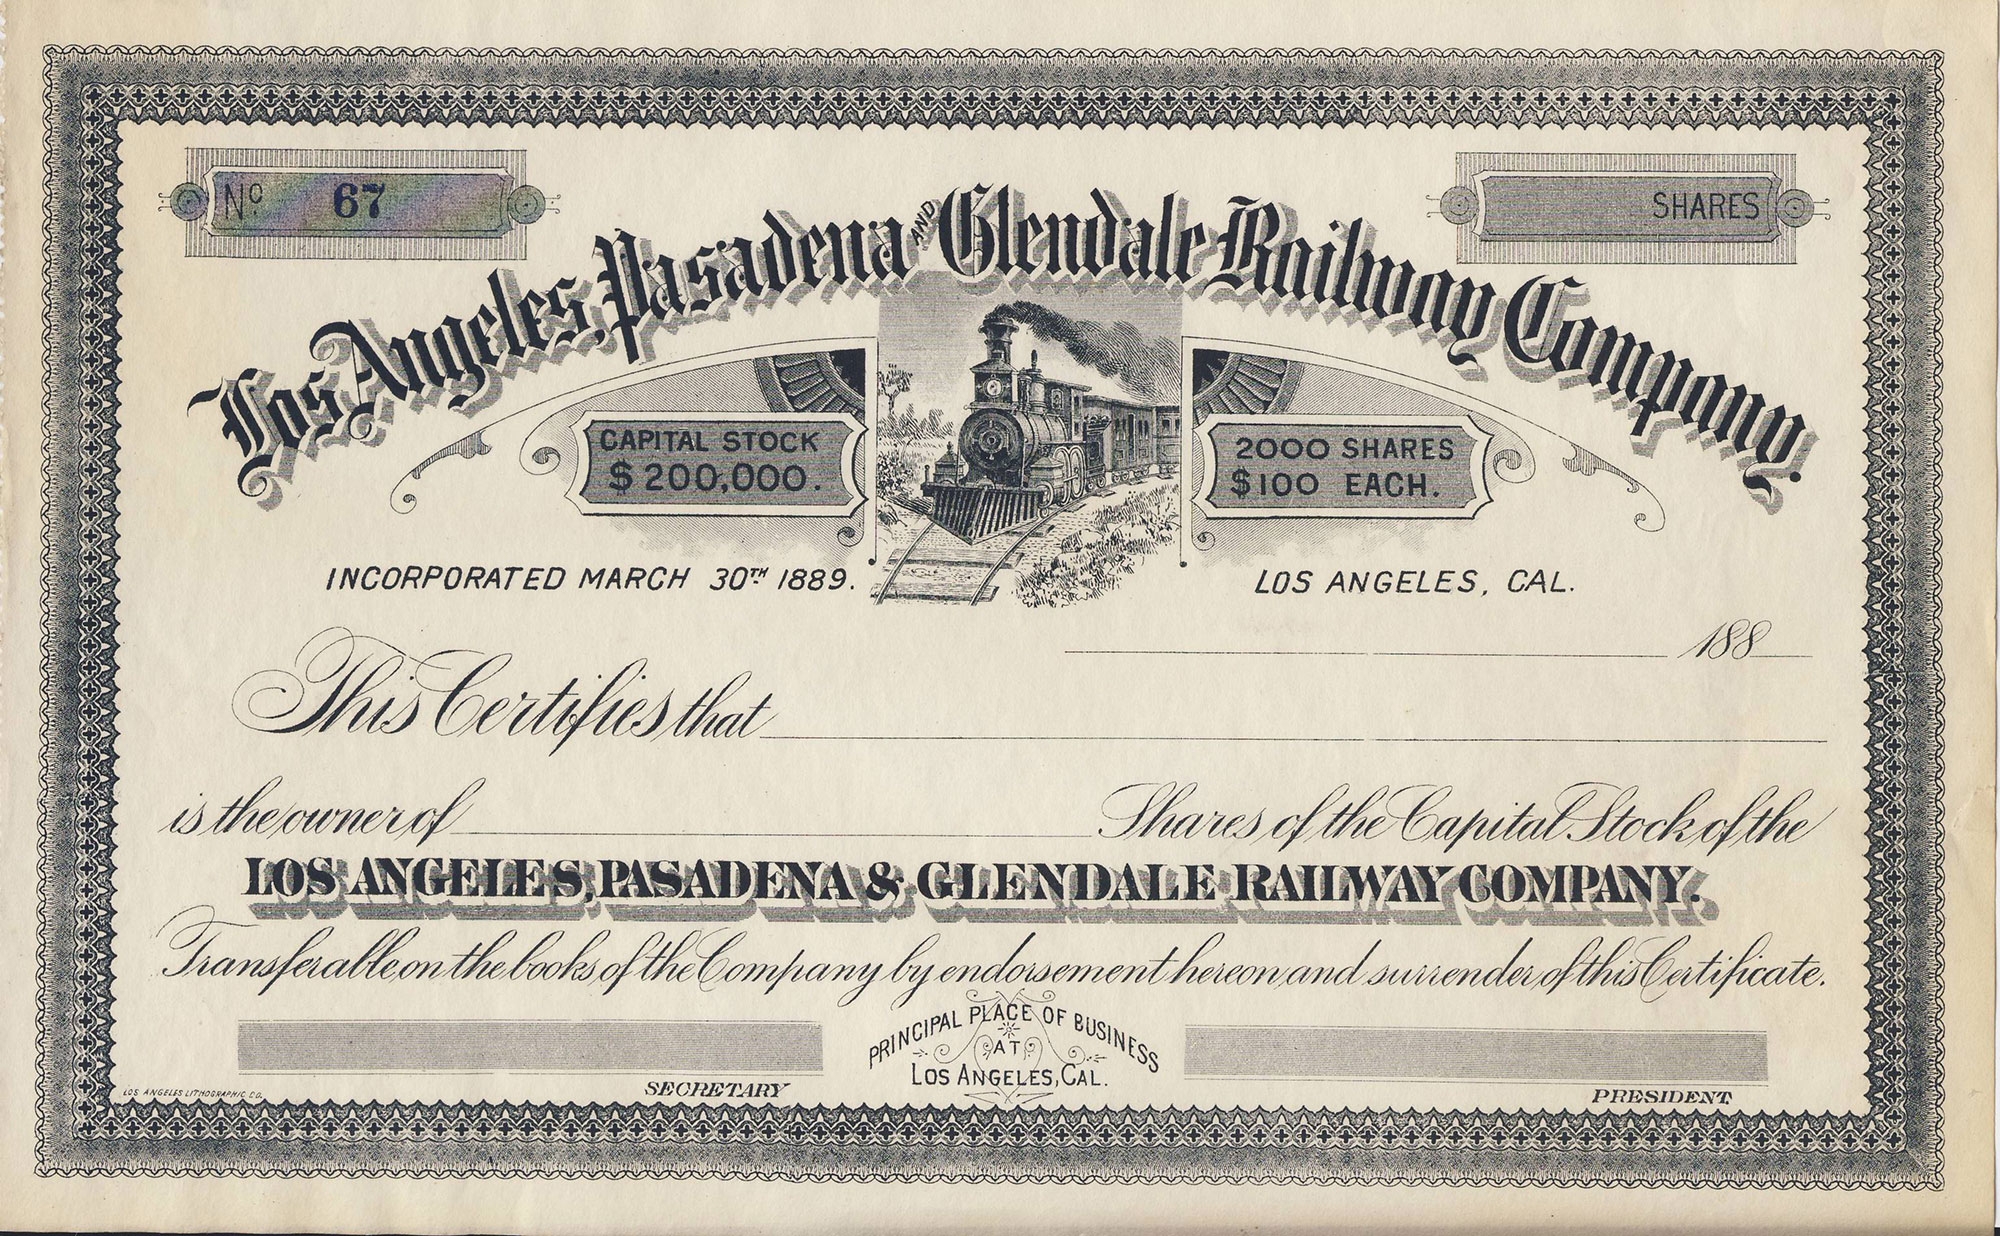 No 67
SHARES
Los Angeles, Pasadena AND Glendale Railway Company.
CAPITAL STOCK
$200,000.
2000 SHARES
$100 EACH.
INCORPORATED MARCH 30TH 1889.
LOS ANGELES, CAL.
188
This Certifies that
is the owner of Shares of the Capital Stock of the
LOS ANGELES, PASADENA & GLENDALE RAILWAY COMPANY.
Transferable on the books of the Company by endorsement hereon and surrender of this Certificate.
PRINCIPAL PLACE OF BUSINESS
AT
LOS ANGELES, CAL.
SECRETARY
PRESIDENT
LOS ANGELES LITHOGRAPHIC CO.